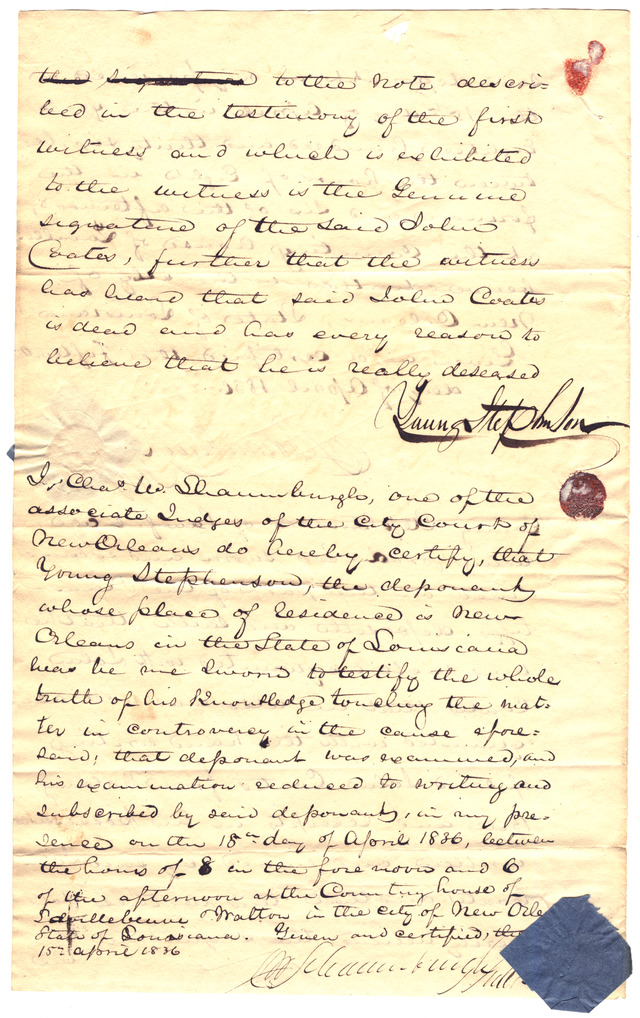 the signature to the Note descri-
bed in the testimony of the first
witness and which is exhibited
to the witness is the Genuine
signature of the said John
Coates, further that the witness
has heard that said John Coates
is dead and has every reason to
believe that he is really deseased
Young Stephenson
I, Chas. W. Shaumburgh, one of the
associate Judges of the City Court of
New Orleans do hereby certify, that
Young Stephenson, the deponant
whose place of residence is New
Orleans in the State of Louisiana
was be me Sworn to testify the whole
truth of his Knowledge touching the mat-
ter in controversy in the cause afore-
said; that deponant was examined, and
his examination reduced to writing and
subscribed by said deponant, in my pre-
sence on the 15th day of April 1836, between
the hours of 8 in the fore noon and 6
of the afternoon at the Counting house of
& Walton in the city of New Orle
State of Louisiana. Given and certified, this
15th april 1836
W Schaumburgh